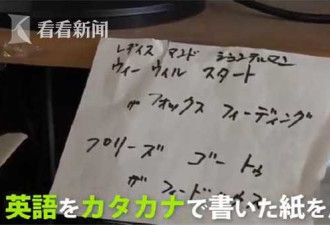 看看新闻
レディス アンド ジェントルマン
ウィー ウィル スタート
ザ フォックス フィーディング
プリーズ ゴー トゥ
ザ フィード
英語をカタカナで書いた紙を